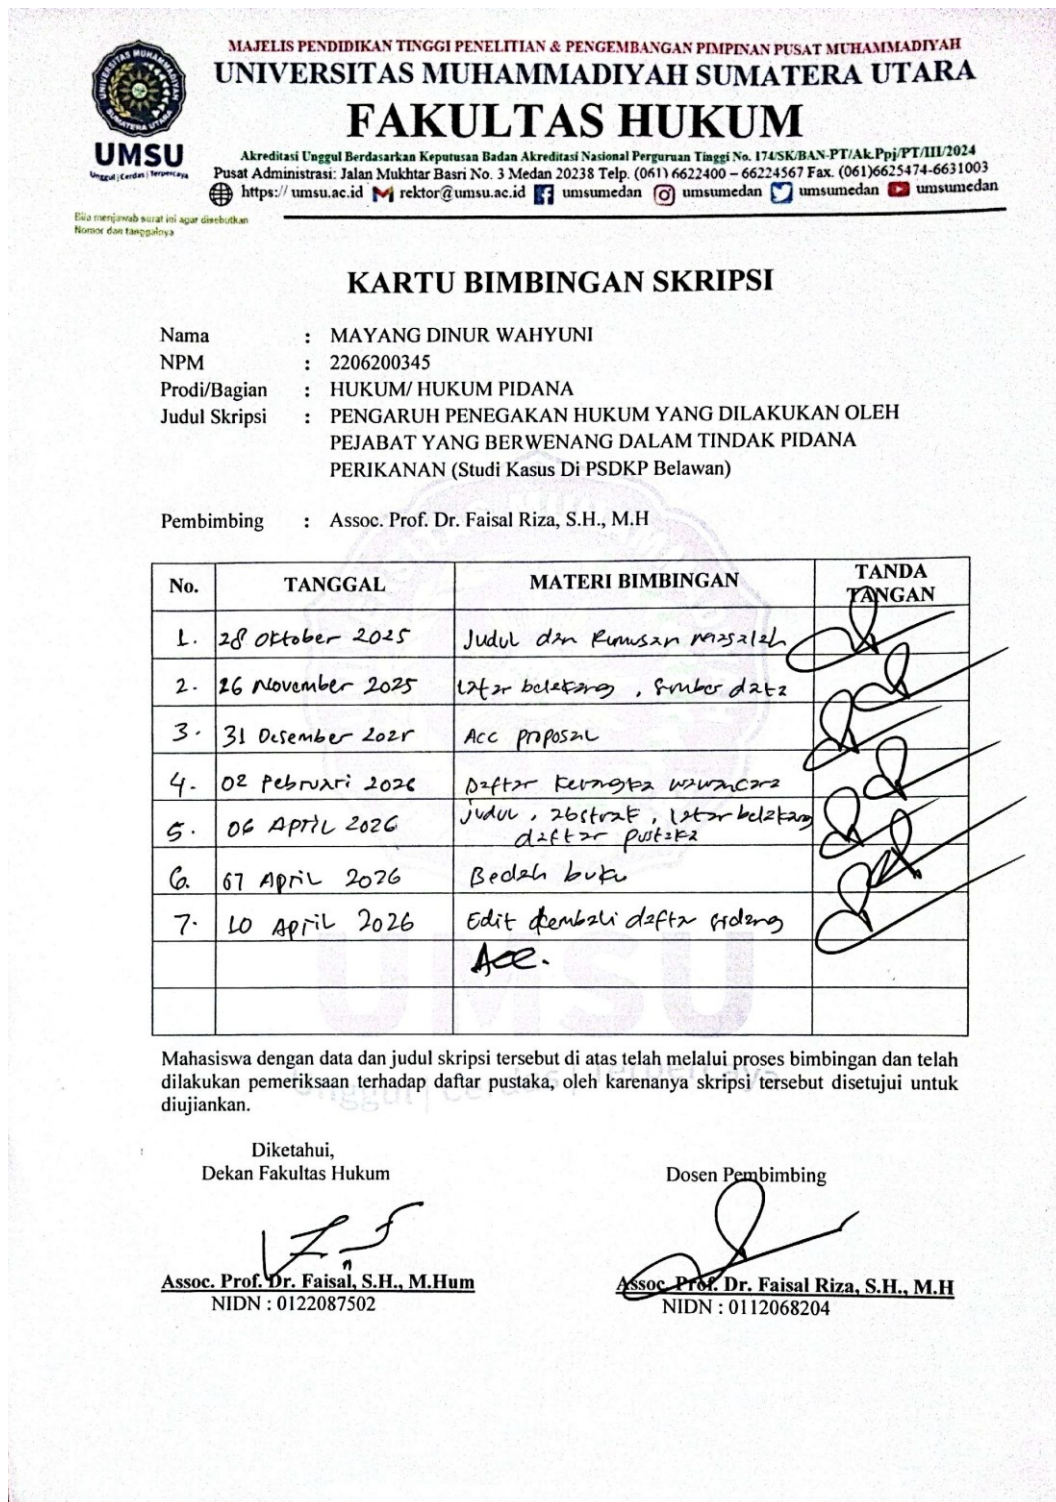 MAJELIS PENDIDIKAN TINGGI PENELITIAN & PENGEMBANGAN PIMPINAN PUSAT MUHAMMADIYAH
UNIVERSITAS MUHAMMADIYAH SUMATERA UTARA
FAKULTAS HUKUM
UMSU
Unggul | Cerdas | Terpercaya
Akreditasi Unggul Berdasarkan Keputusan Badan Akreditasi Nasional Perguruan Tinggi No. 174/SK/BAN-PT/Ak.Ppj/PT/III/2024
Pusat Administrasi: Jalan Mukhtar Basri No. 3 Medan 20238 Telp. (061) 6622400 – 66224567 Fax. (061)6625474-6631003
https://umsu.ac.id rektor@umsu.ac.id umsumedan umsumedan umsumedan umsumedan
Bila menjawab surat ini agar disebutkan
Nomor dan tanggalnya
KARTU BIMBINGAN SKRIPSI
Nama : MAYANG DINUR WAHYUNI
NPM : 2206200345
Prodi/Bagian : HUKUM/ HUKUM PIDANA
Judul Skripsi : PENGARUH PENEGAKAN HUKUM YANG DILAKUKAN OLEH
PEJABAT YANG BERWENANG DALAM TINDAK PIDANA
PERIKANAN (Studi Kasus Di PSDKP Belawan)
Pembimbing : Assoc. Prof. Dr. Faisal Riza, S.H., M.H
No. TANGGAL MATERI BIMBINGAN TANDA TANGAN
1. 28 Oktober 2025 Judul dan Rumusan masalah
2. 26 November 2025 Latar belakang, sumber data
3. 31 Desember 2025 Acc proposal
4. 02 Pebruari 2026 Daftar kerangka wawancara
5. 06 April 2026 judul, abstrak, latar belakang
daftar pustaka
6. 07 April 2026 Bedah buku
7. 10 April 2026 Edit kembali daftar sidang
Acc.
UMSU
Unggul | Cerdas | Terpercaya
Mahasiswa dengan data dan judul skripsi tersebut di atas telah melalui proses bimbingan dan telah
dilakukan pemeriksaan terhadap daftar pustaka, oleh karenanya skripsi tersebut disetujui untuk
diujiankan.
Diketahui,
Dekan Fakultas Hukum Dosen Pembimbing
Assoc. Prof. Dr. Faisal, S.H., M.Hum Assoc. Prof. Dr. Faisal Riza, S.H., M.H
NIDN : 0122087502 NIDN : 0112068204